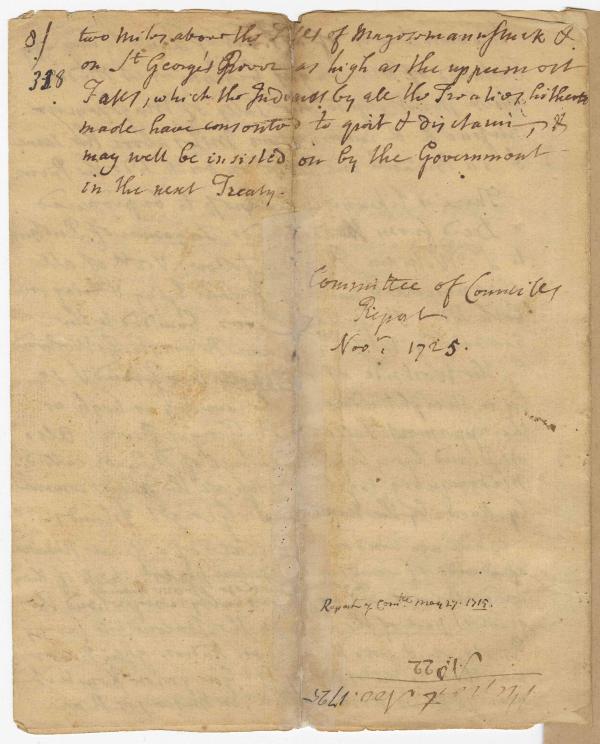 8/
318
two Miles above the of Magosmanussuck &
on St. George's River as high as the uppermost
Falls, which the Indians by all the Treaties hitherto
made have consented to quit & disclaim, &
may well be insisted on by the Government
in the next Treaty.
Committee of Councils
Report
Novr. 1725.
Report of Comtee May 27. 1715.
No 22
Report Nov. 1725